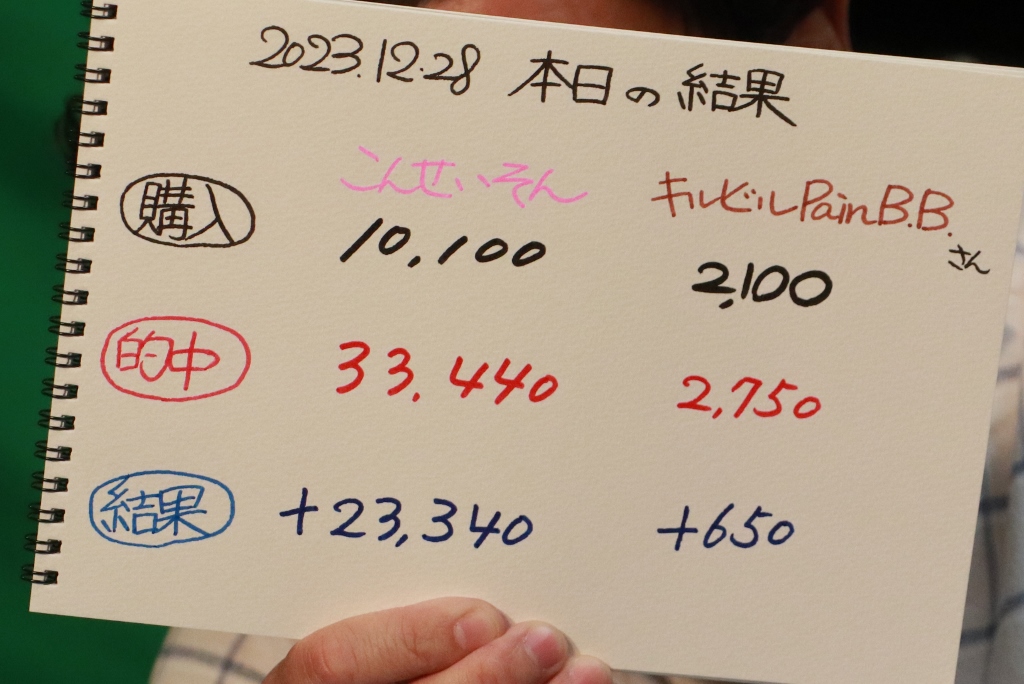 2023.12.28 本日の結果
こんせいそん キルビルPainB.B.さん
購入 10,100 2,100
的中 33,440 2,750
結果 +23,340 +650